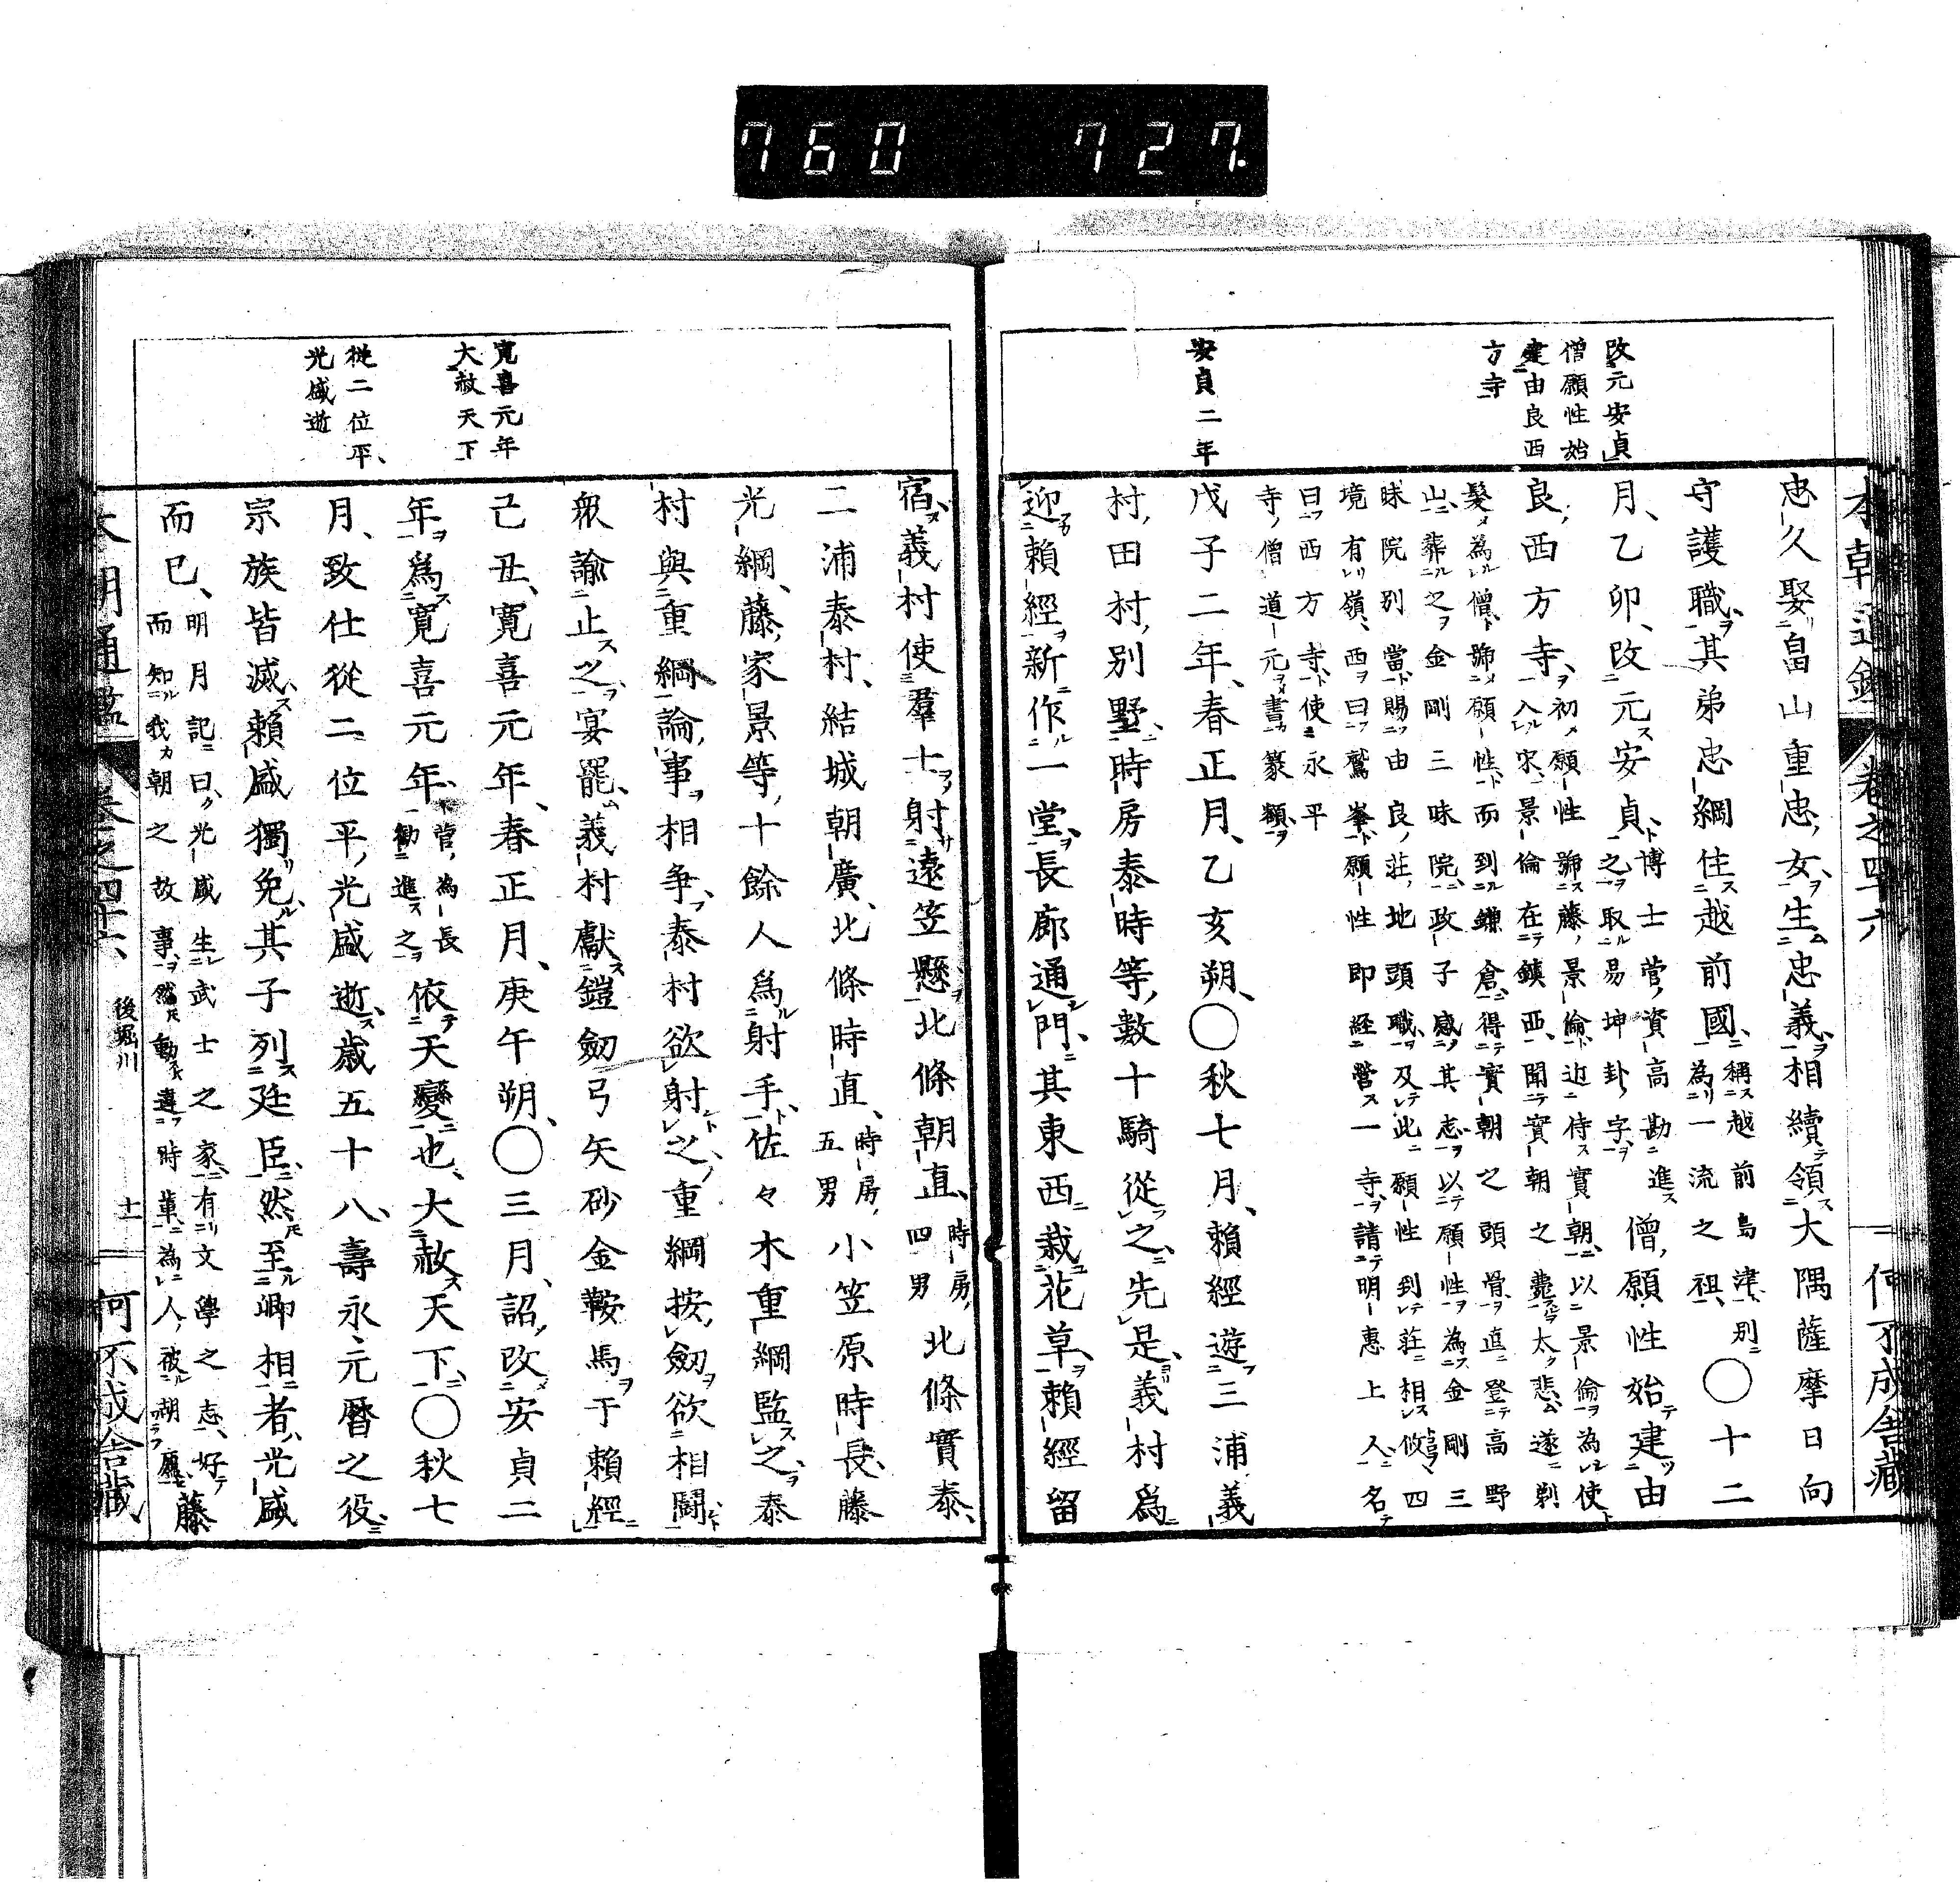 760 727
本朝通鑑 卷之四十六 何不成舍藏
改元安貞
僧願性始
建由良西
方寺
安貞二年
忠久娶畠山重忠女生忠義相續領大隅薩摩日向
守護職其弟忠綱住越前國稱越前島津別爲一流之祖〇十二
月乙卯改元安貞博士菅資高勘進之取易坤卦字僧願性始建由
良西方寺初願性號藤景倫近侍實朝以景倫爲使入宋景倫在鎭西聞實朝之薨太悲遂剃
髮爲僧號願性而到鎌倉得實朝之頭骨直登高野
山葬之金剛三昧院政子感其志以願性爲金剛三
昧院別當賜由良莊地頭職及此願性到莊相攸四
境有嶺西曰鷲峯願性卽經營一寺請明惠上人名
曰西方寺使永平
寺僧道元書篆額
戊子二年春正月乙亥朔〇秋七月賴經遊三浦義
村田村別墅時房泰時等數十騎從之先是義村爲
迎賴經新作一堂長廊通門其東西栽花草賴經留
寬喜元年
大赦天下
從二位平
光盛逝
宿義村使羣士射遠笠懸北條朝直時房四男北條實泰
三浦泰村結城朝廣北條時直時房五男小笠原時長藤
光綱藤家景等十餘人爲射手佐々木重綱監之泰
村與重綱論事相爭泰村欲射之重綱按劒欲相鬪
衆諭止之宴罷義村獻鎧劒弓矢砂金鞍馬于賴經
己丑寬喜元年春正月庚午朔〇三月詔改安貞二
年爲寬喜元年菅爲長勘進之依天變也大赦天下〇秋七
月致仕從二位平光盛逝歲五十八壽永元曆之役
宗族皆滅賴盛獨免其子列廷臣然至卿相者光盛
而已明月記曰光盛生武士之家有文學之志好而知我朝之故事然動違時輩爲人被胡盧藤
本朝通鑑 卷之四十六 後堀川 十一 何不成舍藏